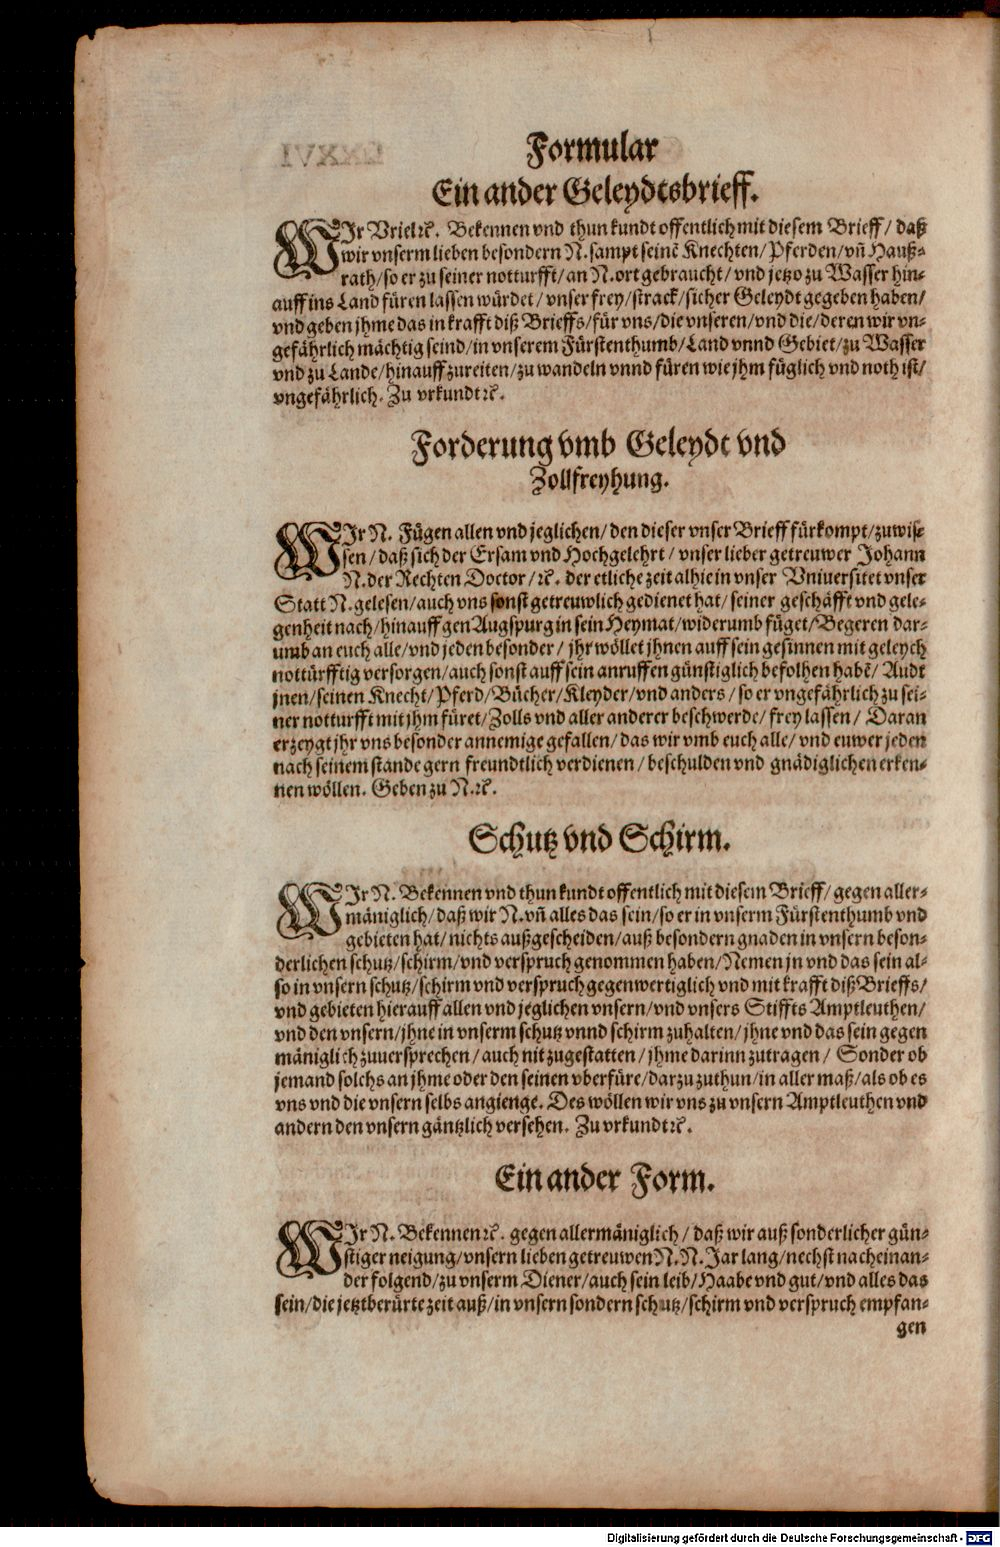 Formular
Ein ander Geleydtsbrieff.
WIr Vriel ꝛc. Bekennen vnd thun kundt offentlich mit diesem Brieff / daß
wir vnserm lieben besondern N. sampt seinẽ Knechten / Pferden / vñ Hauß-
rath / so er zu seiner notturfft / an N. ort gebraucht / vnd jetzo zu Wasser hin-
auff ins Land füren lassen würdet / vnser frey / strack / sicher Geleydt gegeben haben /
vnd geben jhme das in krafft diß Brieffs / für vns / die vnseren / vnd die / deren wir vn-
gefährlich mächtig seind / in vnserem Fürstenthumb / Land vnnd Gebiet / zu Wasser
vnd zu Lande / hinauff zureiten / zu wandeln vnnd füren wie jhm füglich vnd noth ist /
vngefährlich. Zu vrkundt ꝛc.
Forderung vmb Geleydt vnd
Zollfreyhung.
WIr N. Fügen allen vnd jeglichen / den dieser vnser Brieff fürkompt / zuwis-
sen / daß sich der Ersam vnd Hochgelehrt / vnser lieber getreuwer Johann
N. der Rechten Doctor / ꝛc. der etliche zeit alhie in vnser Vniuersitet vnser
Statt N. gelesen / auch vns sonst getreuwlich gedienet hat / seiner geschäfft vnd gele-
genheit nach / hinauff gen Augspurg in sein Heymat / widerumb füget / Begeren dar-
umb an euch alle / vnd jeden besonder / jhr wöllet jhnen auff sein gesinnen mit geleych
nottürfftig versorgen / auch sonst auff sein anruffen günstiglich befolhen habẽ / Audt
jnen / seinen Knecht / Pferd / Bücher / Kleyder / vnd anders / so er vngefährlich zu sei-
ner notturfft mit jhm füret / Zolls vnd aller anderer beschwerde / frey lassen / Daran
erzeygt jhr vns besonder annemige gefallen / das wir vmb euch alle / vnd euwer jeden
nach seinem stande gern freundtlich verdienen / beschulden vnd gnädiglichen erken-
nen wöllen. Geben zu N. ꝛc.
Schutz vnd Schirm.
WIr N. Bekennen vnd thun kundt offentlich mit diesem Brieff / gegen aller-
mäniglich / daß wir N. vñ alles das sein / so er in vnserm Fürstenthumb vnd
gebieten hat / nichts außgescheiden / auß besondern gnaden in vnsern beson-
derlichen schutz / schirm / vnd verspruch genommen haben / Nemen jn vnd das sein al-
so in vnsern schutz / schirm vnd verspruch gegenwertiglich vnd mit krafft diß Brieffs /
vnd gebieten hierauff allen vnd jeglichen vnsern / vnd vnsers Stiffts Amptleuthen /
vnd den vnsern / jhne in vnserm schutz vnnd schirm zuhalten / jhne vnd das sein gegen
mäniglich zuuersprechen / auch nit zugestatten / jhme darinn zutragen / Sonder ob
jemand solchs an jhme oder den seinen vberfüre / darzu zuthun / in aller maß / als ob es
vns vnd die vnsern selbs angienge. Des wöllen wir vns zu vnsern Amptleuthen vnd
andern den vnsern gäntzlich versehen. Zu vrkundt ꝛc.
Ein ander Form.
WIr N. Bekennen ꝛc. gegen allermäniglich / daß wir auß sonderlicher gün-
stiger neigung / vnsern lieben getreuwen N. N. Jar lang / nechst nacheinan-
der folgend / zu vnserm Diener / auch sein leib / Haabe vnd gut / vnd alles das
sein / die jetztberürte zeit auß / in vnsern sondern schutz / schirm vnd verspruch empfan-
gen
Digitalisierung gefördert durch die Deutsche Forschungsgemeinschaft - DFG